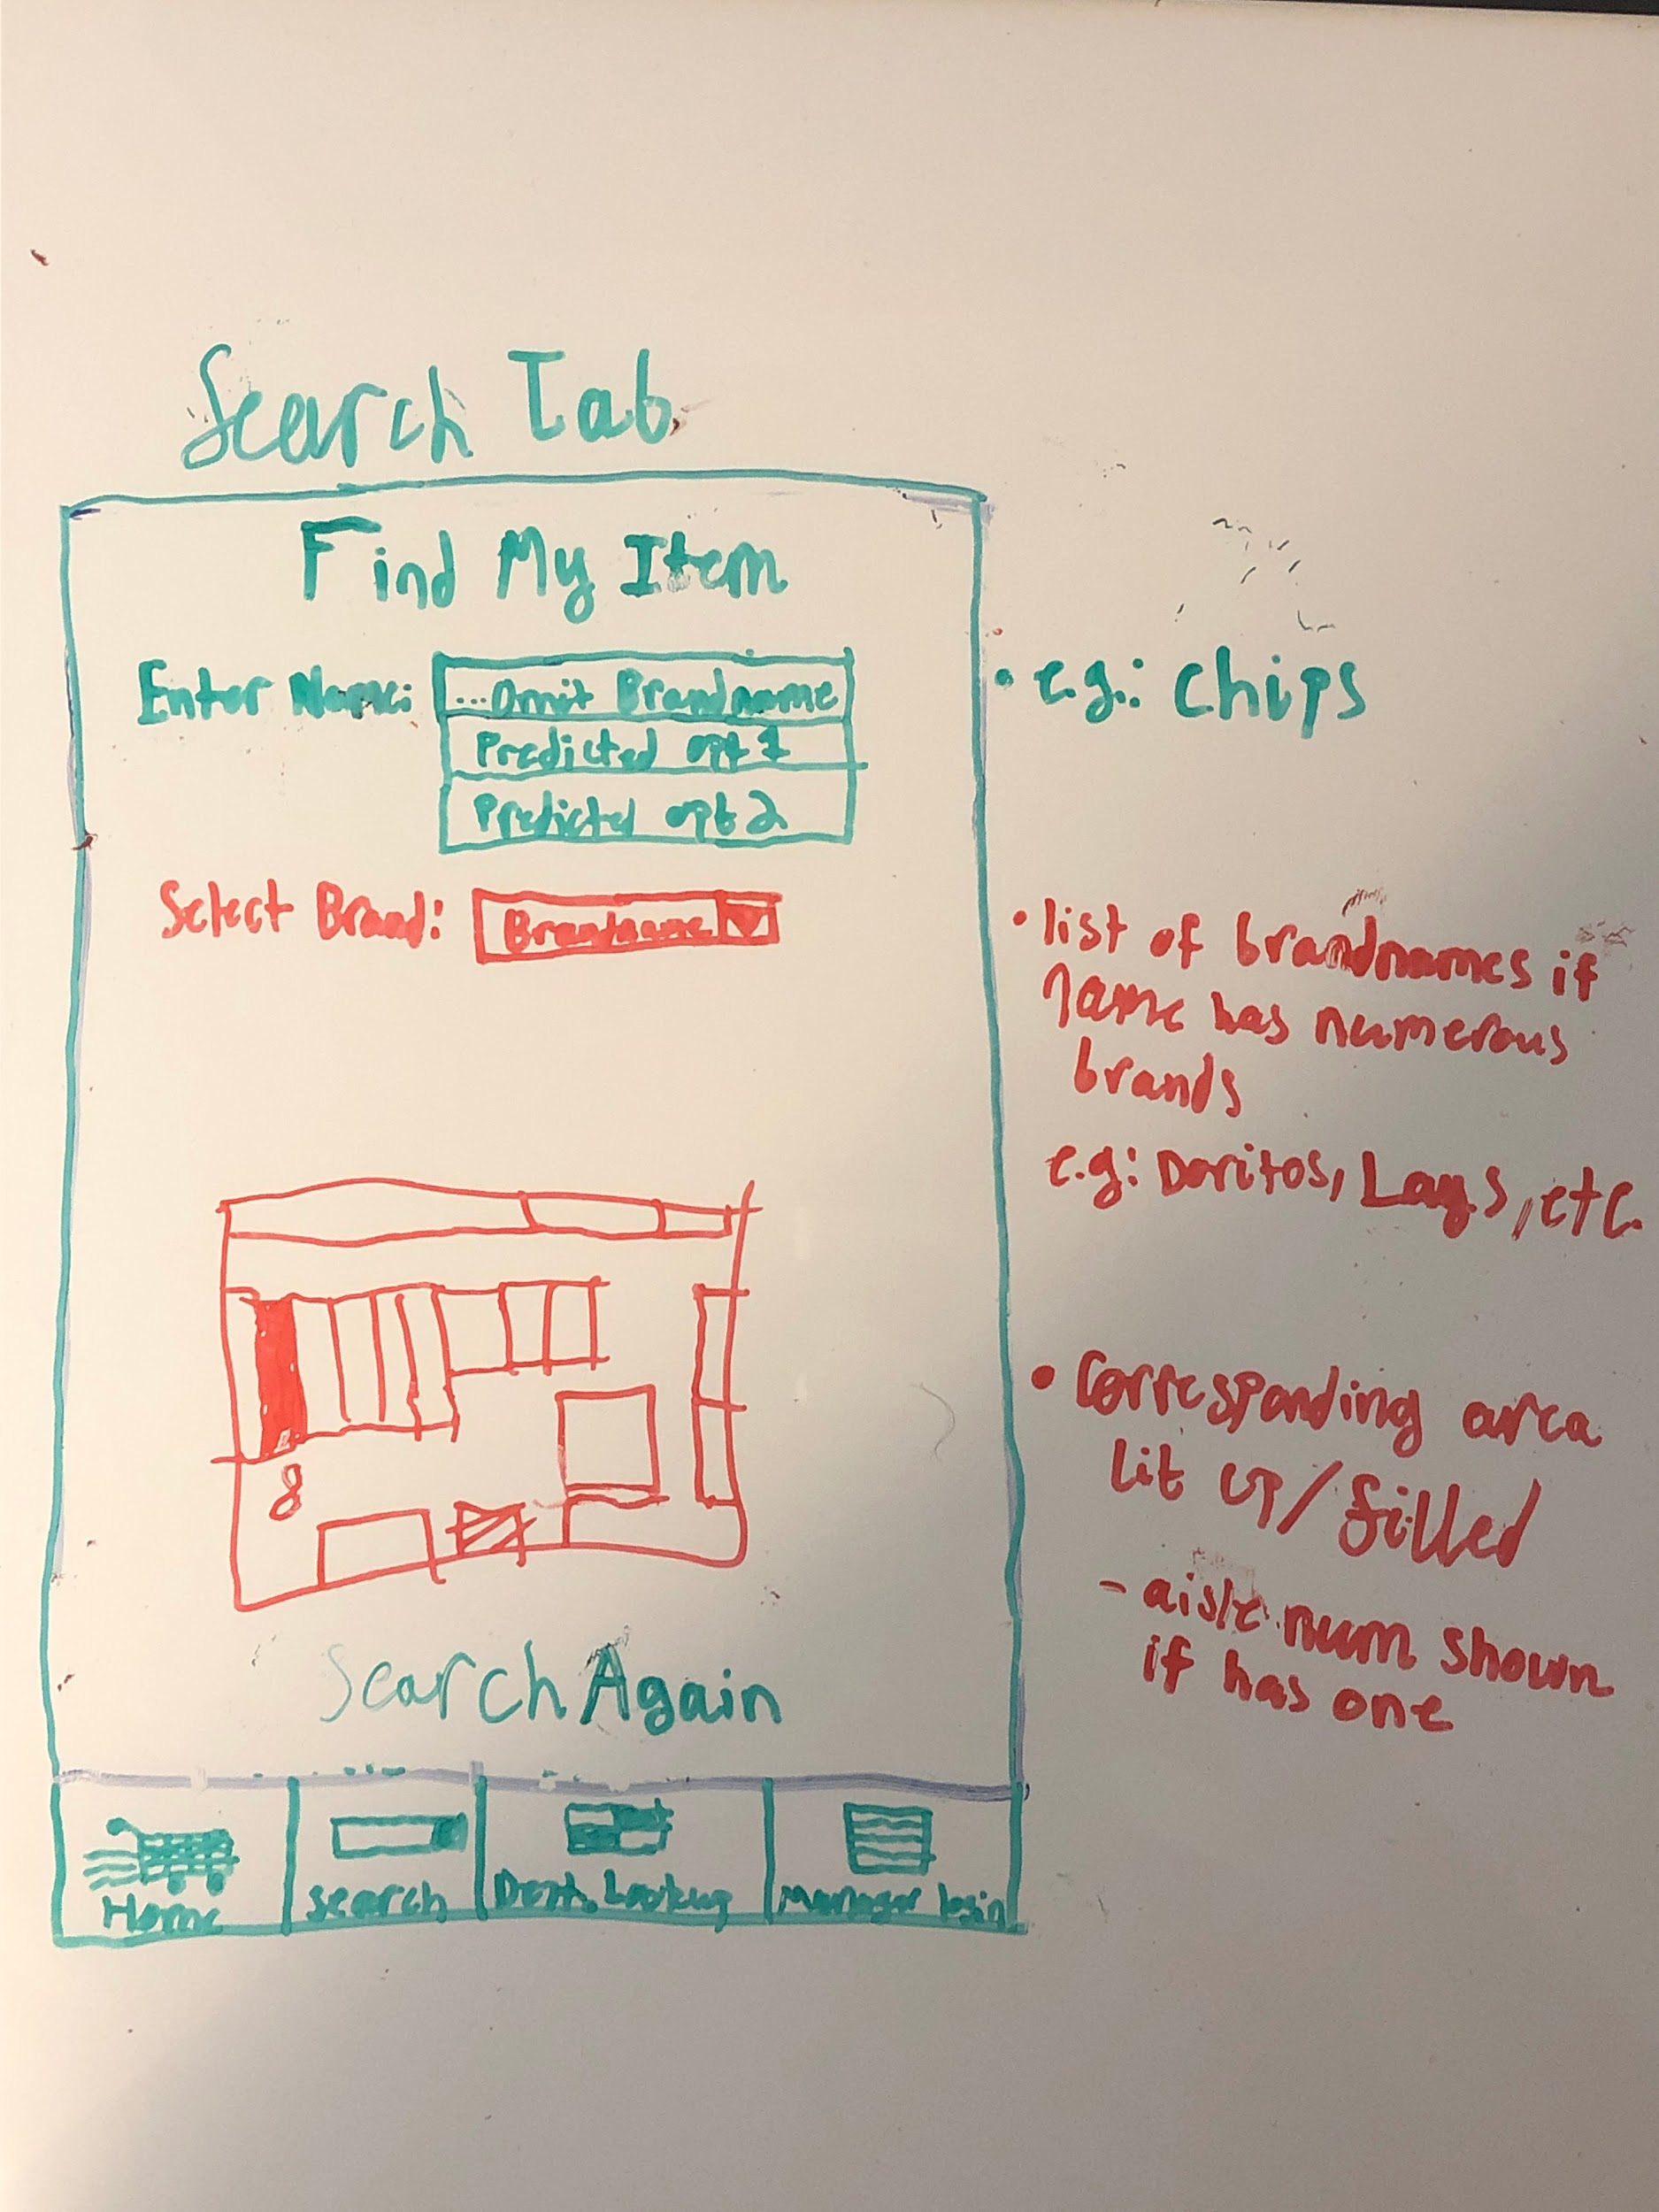 Search Tab
Find My Item
Enter Name: ...Omit Brandname
Predicted opt 1
Predicted opt 2
• e.g.: Chips
Select Brand: Brandname
• list of brandnames if
name has numerous
brands
e.g: Doritos, Lays, etc.
8
• Corresponding area
lit up/filled
- aisle num shown
if has one
Search Again
Home
Search
Dept. Lookup
Manager login